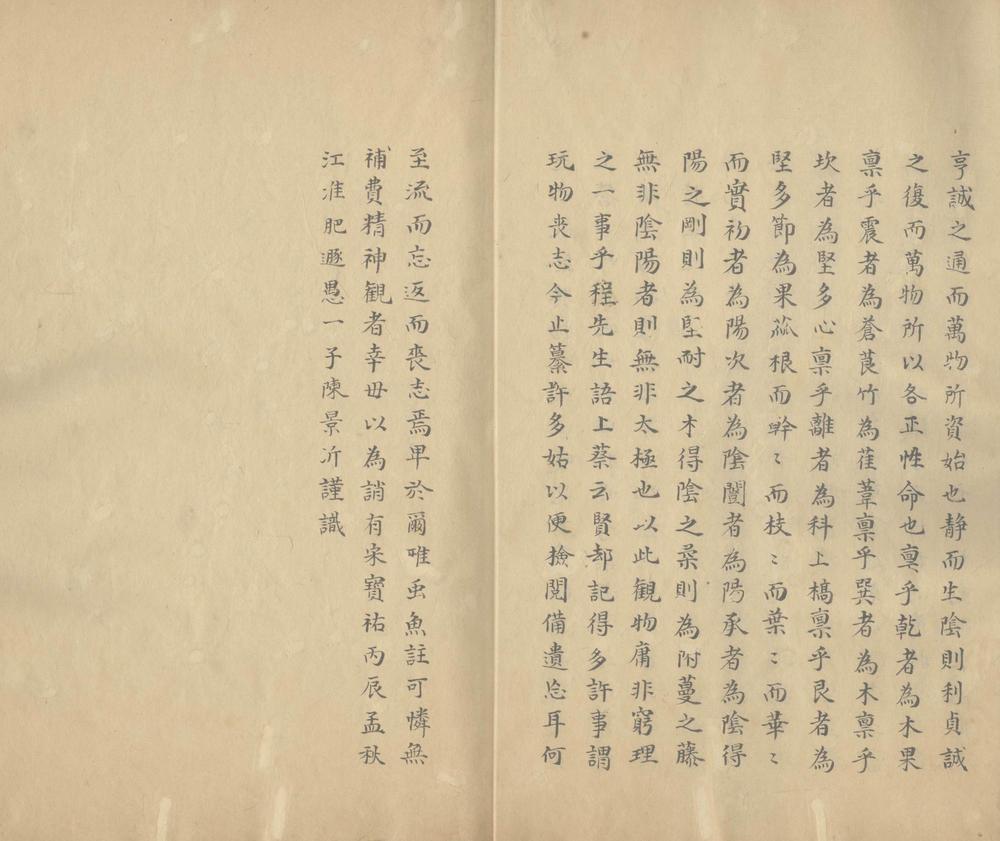 亨誠之通而萬物所資始也静而生陰則利貞誠
之復而萬物所以各正性命也稟乎乾者為木果
稟乎震者為蒼茛竹為萑葦稟乎巽者為木稟乎
坎者為堅多心稟乎離者為科上槁稟乎艮者為
堅多節為果蓏根而幹〻而枝〻而葉〻而華〻
而實初者為陽次者為陰闓者為陽承者為陰得
陽之剛則為堅耐之木得陰之柔則為附蔓之藤
無非陰陽者則無非太極也以此観物庸非窮理
之一事乎程先生語上蔡云賢却記得多許事謂
玩物丧志今止纂許多姑以便撿閱備遺忘耳何
至流而忘返而喪志焉畢於爾唯虫魚註可憐無
補費精神観者幸毋以為誚有宋寶祐丙辰孟秋
江淮肥遯愚一子陳景沂謹識